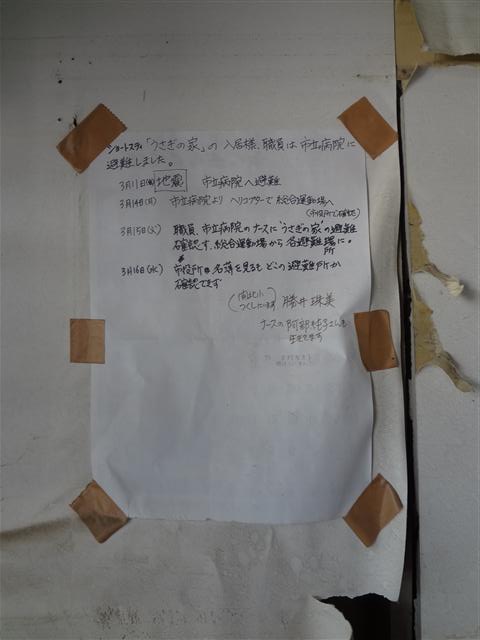 ショートスティ「うさぎの家」の入居様、職員は市立病院に
避難しました。
3月11日(金) 地震 市立病院へ避難
3月14日(月) 市立病院よりヘリコプターで総合運動場へ
(市役所で確認)
3月15日(火) 職員、市立病院のナースに"うさぎの家"の避難
確認す、総合運動場から各避難場に。
所
3月16日(水) 市役所 名簿を見るもどこの避難所か
確認できず
つくしています 勝井 珠美
ナースの阿部純子さんも
生きてます